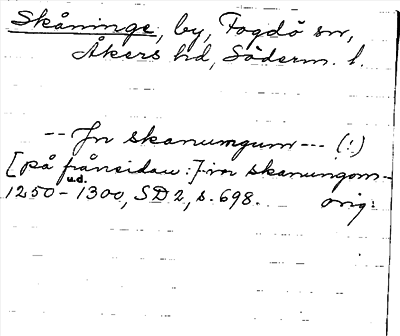 Skåninge, by, Fogdö sn,
Åkers hd, Söderm. l.
-- Jn skanumgum --- (!)
[på frånsidan:] in skanungom-
u.d.
1250-1300, SD 2, s. 698. orig.